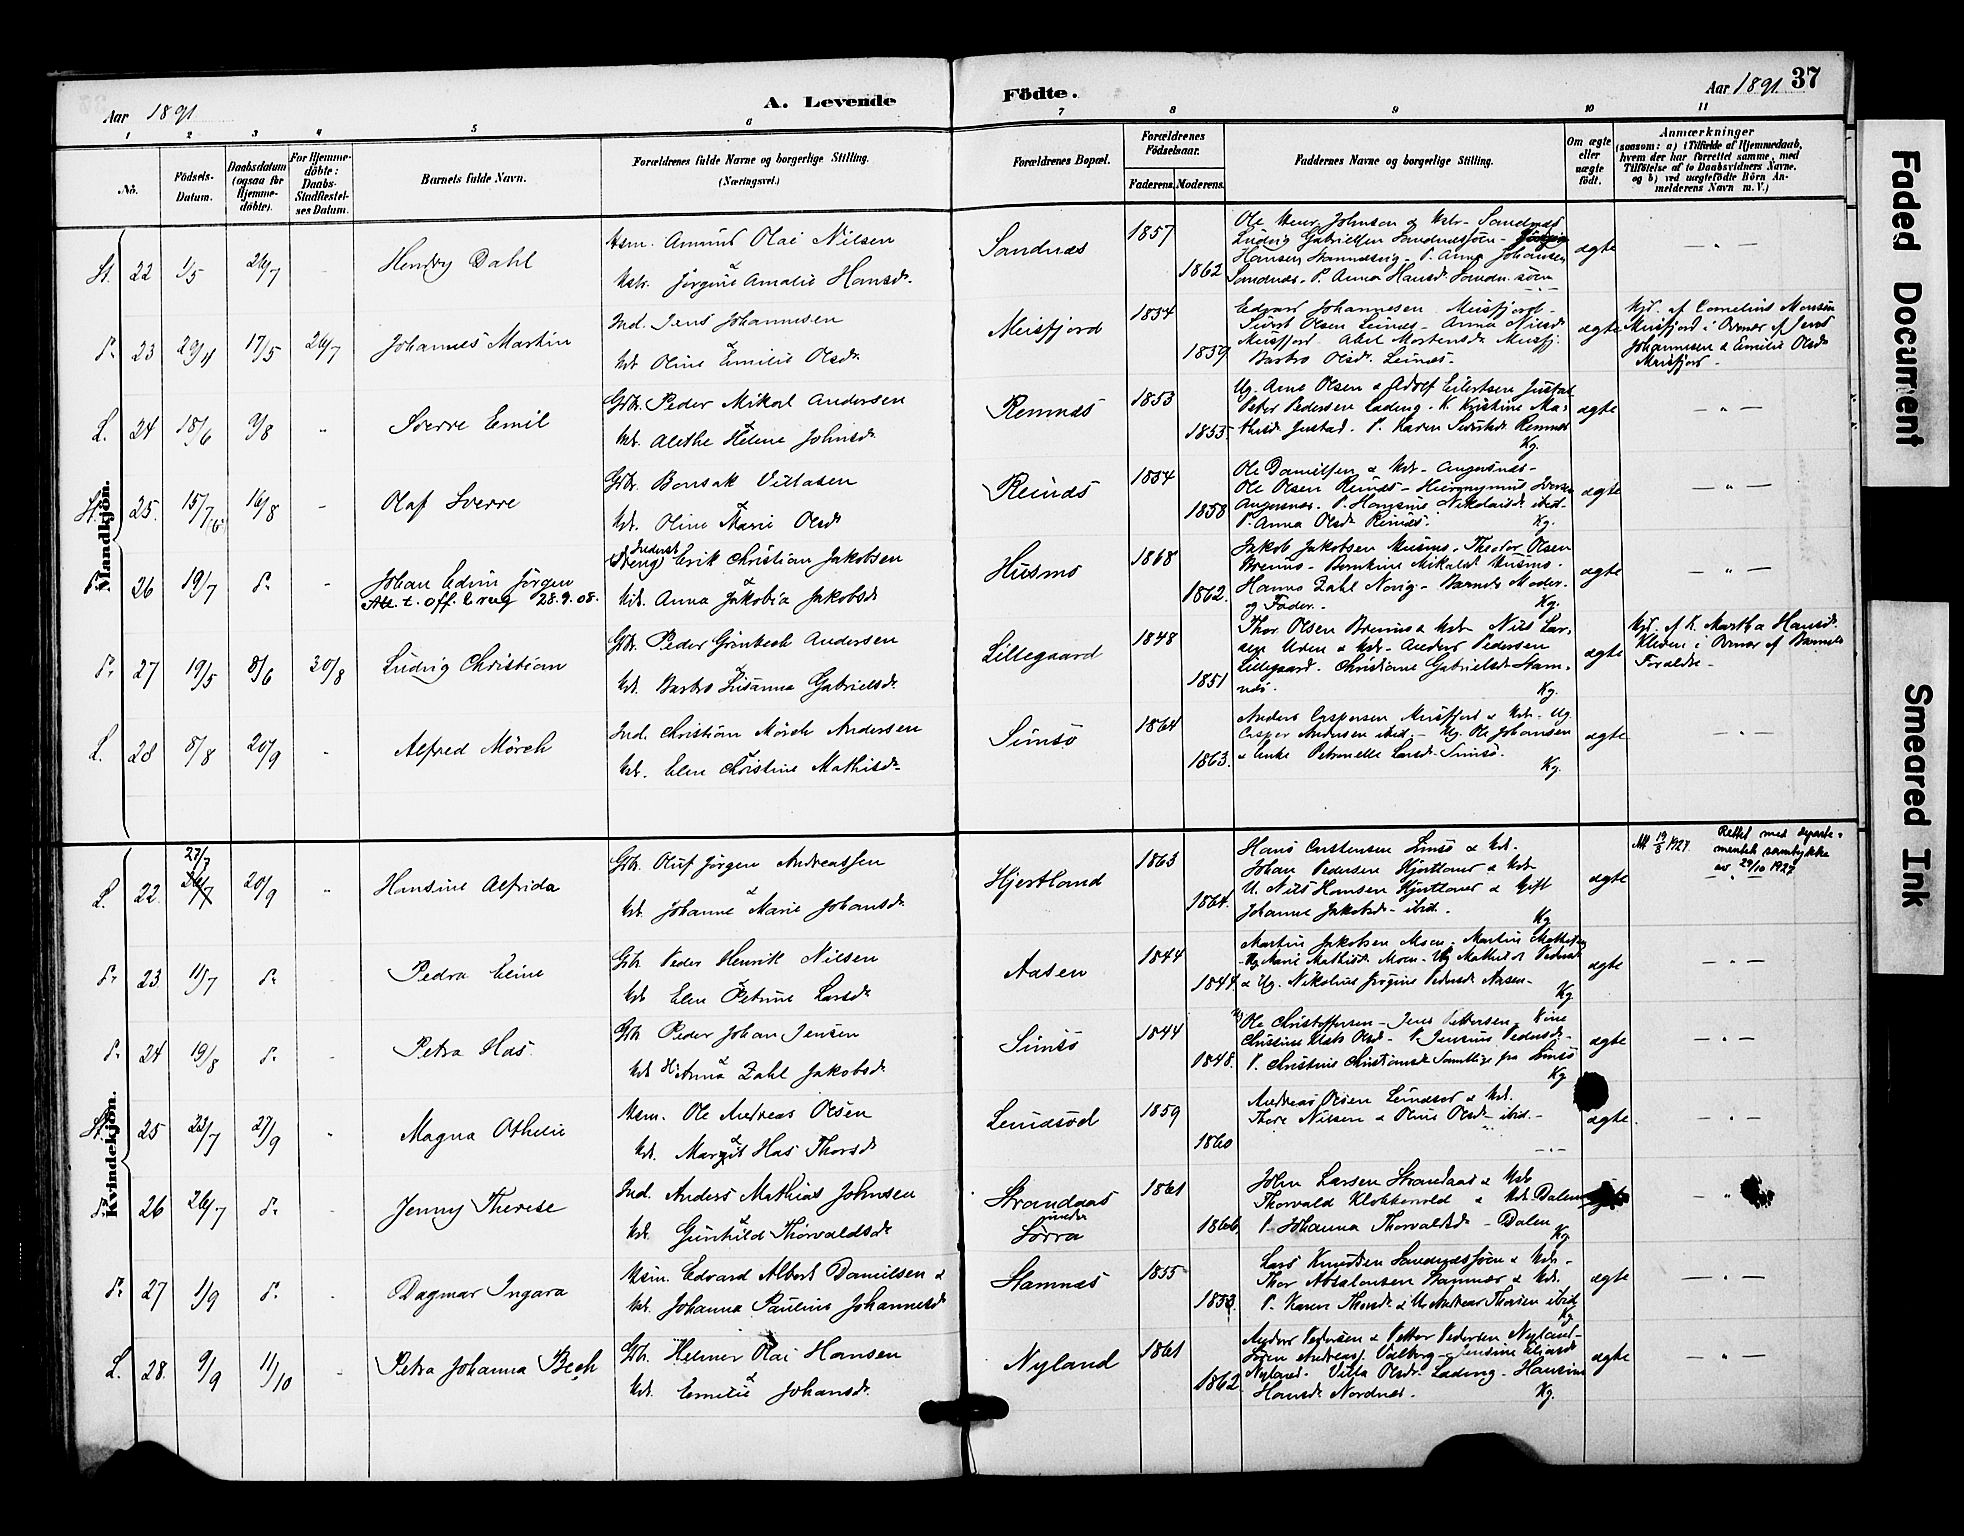 Aar 1891
A. Levende
Födte.
Aar 1891 37
1 2 3 4 5 6 7 8 9 10 11
No.
Födsels-
Datum.
Daabsdatum
(ogsaa for
Hjemme-
döbte).
For Hjemme-
döbte:
Daabs-
Stadfæstel-
ses Datum.
Barnets fulde Navn.
Forældrenes fulde Navne og borgerlige Stilling.
(Næringsvei.)
Forældrenes Bopæl.
Forældrenes
Födselsaar.
Faderens. Moderens.
Faddernes Navne og borgerlige Stilling.
Om ægte
eller
uægte
født.
Anmærkninger
(saasom: a) i Tilfælde af Hjemmedaab,
hvem der har forrettet samme, med
Tilföielse af to Daabsvidners Navne,
og b) ved uægtefödte Börn An-
melderens Navn m. V.)
Mandkjön.
St. 22 1/5 26/7 - Henry Dahl
Hsm. Amund Olai Nilsen
Hstr. Jørgine Amalie Hansdr.
Sandnæs 1857 1862
Ole Johnson & Hstr. Sandnæs
Ludvig Gabrielsen Sandnæssjøen
Hansen P. Anna Johansen
Sandnæs. P. Anna Hansdr.
ægte
Dr. 23 29/4 17/5 26/7 Johannes Martin
Ind. Jens Johannesen
Hst. Oline Emilie Olsdr.
Meisfjord 1854 1859
Edvard Johannesen Meisfjord
Sivert Olsen Leinæs - Anna Nilsdr
Meisfjord Abel Mortensdr. Meisfj.
Barbro Olsdr. Leinæs.
ægte
Hjd. af Cornelius Monsen
Meisfjord i Overvær af Jens
Johannesen & Emilie Olsdr
Meisfjord
L. 24 18/6 9/8 Sverre Emil
Gbr. Peder Mikal Andersen
Hst. Alethe Helene Johnsdr
Remnæs 1853 1853
Ug. Arne Olsen & Adolf Eilertsen Justad
Peter Pedersen Lading. K. Kristine Ma-
thisdr Justad. P. Karen Sivertsdr Remnæs
Kg.
ægte
St. 25. 15/7 16/8 - Olaf Sverre
Gbr. Bonsak Villasen
Hst. Oline Marie Olsdr
Reinæs 1854 1858
Ole Danielsen & Hst. Angersnæs
Ole Olsen Reinæs - Hieronymus Iversen
Angersnæs. P. Hansine Nikolaisdr ibid.
P. Anna Olsdr Reinæs.
Kg.
ægte
Dr. 26 19/7 Dr. - Johan Edvin Jørgen
Att. t. off. brug 28.9.08.
Inderst
(Dreng) Erik Christian Jakobsen
Hst. Anna Jakobia Jakobsdr
Husmo 1868 1862.
Jakob Jakobsen Husmo. Theodor Olsen
Bremnes - Bernhine Mikalsdr Husmo.
Hanna Dahl Novig - Barnets Moder
og Fader.
Kg.
ægte
Dr. 27 19/5 8/6 30/8 Ludvig Christian
Gbr. Peder Grönbech Andersen
Hst. Barbro Susanna Gabrielsdr.
Lillegaard 1848 1851
Thor Olsen & Hst. Nils Lar-
sen Uren & Hst. Anders Pedersen
Lillegaard. Christiane Gabrielsdr. Stam-
næs.
Kg.
ægte
Hjd. af K. Martha Hansdr.
i Overvær af Barnets
Forældre
L. 28 8/8 20/9 - Alfred Mörch
Ind. Christian Mörch Andersen
Hst. Elen Christine Mathisdr
Sunsø 1864 1863.
Anders Caspersen Meisfjord & Hst. Ug.
Casper Andersen ibid. - Ug. Ole Johansen
& Enke Petronelle Larsdr Sunsø.
Kg.
ægte
Kvindekjön.
L. 22. 27/7 26/7 20/9 Hansine Alfrida
Gbr. Oluf Jørgen Andreassen
Hst. Johanne Marie Johansdr.
Hjertland 1863 1864.
Hans Carstensen Sunsø & Hst.
Johan Pedersen Hjertland & Hst
U. Nils Hansen Hjertland & Gift
Johanne Jakobsdr - ibid.
Kg
ægte
Att 19/8 1927. Rettet med departe-
mentets samtykke
av 29/10 1927
Dr. 23. 11/7 Dr. Pedra Eline
Gbr Peder Henrik Nilsen
Hst Elen Petrine Larsdr
Aasen 1844 1844.
Martin Jakobsen Moen. Martin Mathisen
Ug Marie Mathisdr Moen - Ug Mathea Pedersdr
& Ug. Nikoline Jørgine Pedersdr Aasen
Kg
ægte
Dr. 24 19/8 Dr. Petra Has.
Gbr Peder Johan Jensen
Hst Anna Dahl Jakobsdr
Sunsø 1844 1848.
Ole Christoffersen - Jens Pettersen
Christine Olsdr - P. Jensine Pedersdr
P. Christine Christiansdr Samtlige fra Sunsø
Kg
ægte
St. 25 23/7 27/9 Magna Othelie
Hsm. Ole Andreas Olsen
Hst. Margit Has Thorsdr
Leindsöd 1859 1860
Andreas Olsen & Hst.
Thore Nilsen & Oline Olsdr ibid.
ægte
Dr. 26 26/7 Dr. Jenny Therese
Ind. Anders Mathias Johnsen
Hst. Gunhild Thorvaldsdr
Strandaas
under
Sørra 1861 1866
John Larsen Strandaas & Hst
Thorvald Klokkervold & Hst Dalen
P. Johanna Thorvaldsdr - Dalen
Kg.
Dr. 27 1/9 Dr. Dagmar Ingara
Hsm. Edvard Albert Danielsen &
Hst. Johanna Pauline Johannesdr
Stamnæs 1855 1853.
Lars Knudsen Sandnæssjøen & Hst
Thor Absalonsen Stamnæs & Hst.
P. Karen Thorsdr & U. Andreas Thorsen ibid
Kg
ægte
L. 28. 9/9 11/10 Petra Johanna Bech
Gbr. Helmer Olai Hansen
Hst. Emelie Johansdr
Nyland 1861 1862
Anders Pedersen & Petter Pedersen Nyland
Søren Andreas. Valberg - Jensine Eliasdr
Nyland. Villa Olsdr. Lading - Hansine
Hansdr Nordnæs.
Kg.
ægte
Faded Document
Smeared Ink